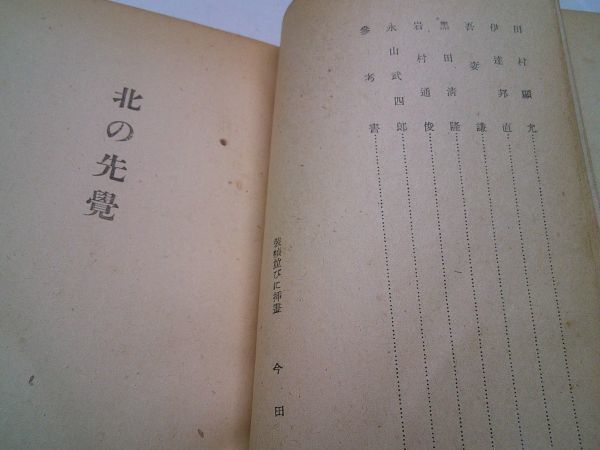 田村顯允
伊達邦直
吾妻謙
黑田淸隆
岩村通俊
永山武四郞
參考書
裝幀並びに挿畫 今田
北の先覺